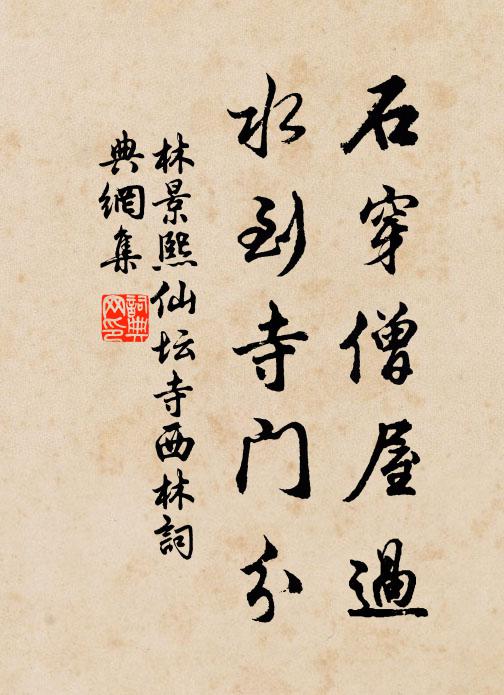 石穿僧屋過
水到寺門分
林景熙仙坛寺西林詞
典網集
詞典網印